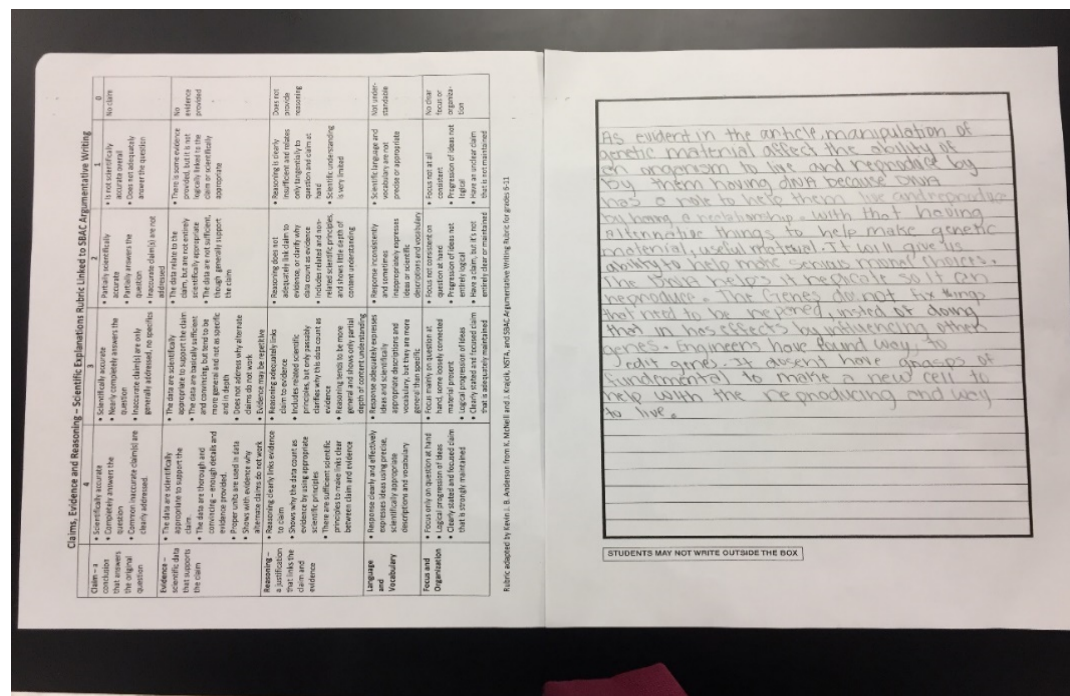 Claims, Evidence and Reasoning – Scientific Explanations Rubric Linked to SBAC Argumentative Writing
4
3
2
1
0
Claim – a
conclusion
that answers
the original
question
• Scientifically accurate
• Completely answers the
question
• Common inaccurate claim(s) are
clearly addressed.
• Scientifically accurate
• Nearly completely answers the
question
• Inaccurate claim(s) are only
generally addressed, no specifics
• Partially scientifically
accurate
• Partially answers the
question
• Inaccurate claim(s) are not
addressed
• Is not scientifically
accurate overall
• Does not adequately
answer the question
No claim
Evidence –
scientific data
that supports
the claim
• The data are scientifically
appropriate to support the
claim.
• The data are thorough and
convincing – enough details and
evidence provided.
• Proper units are used in data
• Shows with evidence why
alternate claims do not work
• The data are scientifically
appropriate to support the claim
• The data are basically sufficient
and convincing, but tend to be
more general and not as specific
and in depth
• Does not address why alternate
claims do not work
• Evidence may be repetitive
• The data relate to the
claim, but are not entirely
scientifically appropriate
• The data are not sufficient,
though generally support
the claim
• There is some evidence
provided, but it is not
logically linked to the
claim or scientifically
appropriate
No
evidence
provided
Reasoning –
a justification
that links the
claim and
evidence
• Reasoning clearly links evidence
to claim
• Shows why the data count as
evidence by using appropriate
scientific principles
• There are sufficient scientific
principles to make links clear
between claim and evidence
• Reasoning adequately links
claim to evidence
• Includes related scientific
principles, but only passably
clarifies why this data count as
evidence
• Reasoning tends to be more
general and shows only partial
depth of content understanding
• Reasoning does not
adequately link claim to
evidence, or clarify why
data count as evidence
• Includes related and non-
related scientific principles,
and shows little depth of
content understanding
• Reasoning is clearly
insufficient and relates
only tangentially to
question and claim at
hand
• Scientific understanding
is very limited
Does not
provide
reasoning
Language
and
Vocabulary
• Response clearly and effectively
expresses ideas using precise,
scientifically appropriate
descriptions and vocabulary
• Response adequately expresses
ideas and scientifically
appropriate descriptions and
vocabulary, but they are more
general than specific
• Response inconsistently
and sometimes
inappropriately expresses
ideas or scientific
descriptions and vocabulary
• Scientific language and
vocabulary are not
precise or appropriate
Not under-
standable
Focus and
Organization
• Focus only on question at hand
• Logical progression of ideas
• Clearly stated and focused claim
that is strongly maintained
• Focus mainly on question at
hand, some loosely connected
material present
• Logical progression of ideas
• Clearly stated and focused claim
that is adequately maintained
• Focus not consistent on
question at hand
• Progression of ideas not
entirely logical
• Have a claim, but it's not
entirely clear or maintained
• Focus not at all
consistent
• Progression of ideas not
logical
• Have an unclear claim
that is not maintained
No clear
focus or
organiza-
tion
Rubric adapted by Kevin J. B. Anderson from K. McNeill and J. Krajcik, NSTA, and SBAC Argumentative Writing Rubric for grades 6-11
As evident in the article, manipulation of
genetic material affect the ability of
an organism to live and reproduce by
by them having DNA because DNA
has a role to help them live and reproduce
by having a relationship. with that having
alternative things to help make genetic
material, useing It will give us
animals choices.
The DNA helps it replicate so it can
reproduce. The Genes do not fix things
that need to be repered, insted of doing
that in has effects by other
genes. Engineers have found way, to
edit genes. It dosent more groups of
fundamental to make a new cell to
help with the reproducing and way
to live.
STUDENTS MAY NOT WRITE OUTSIDE THE BOX